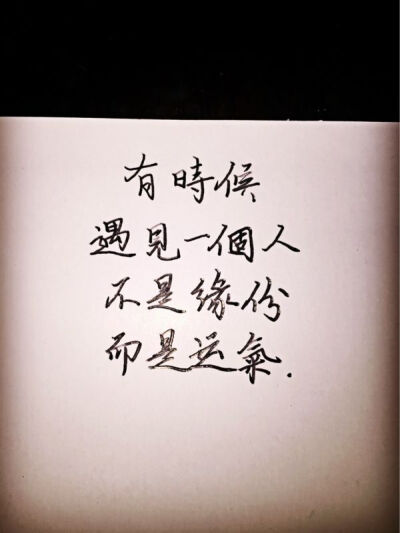 有時候
遇見一個人
不是缘份
而是运氣.